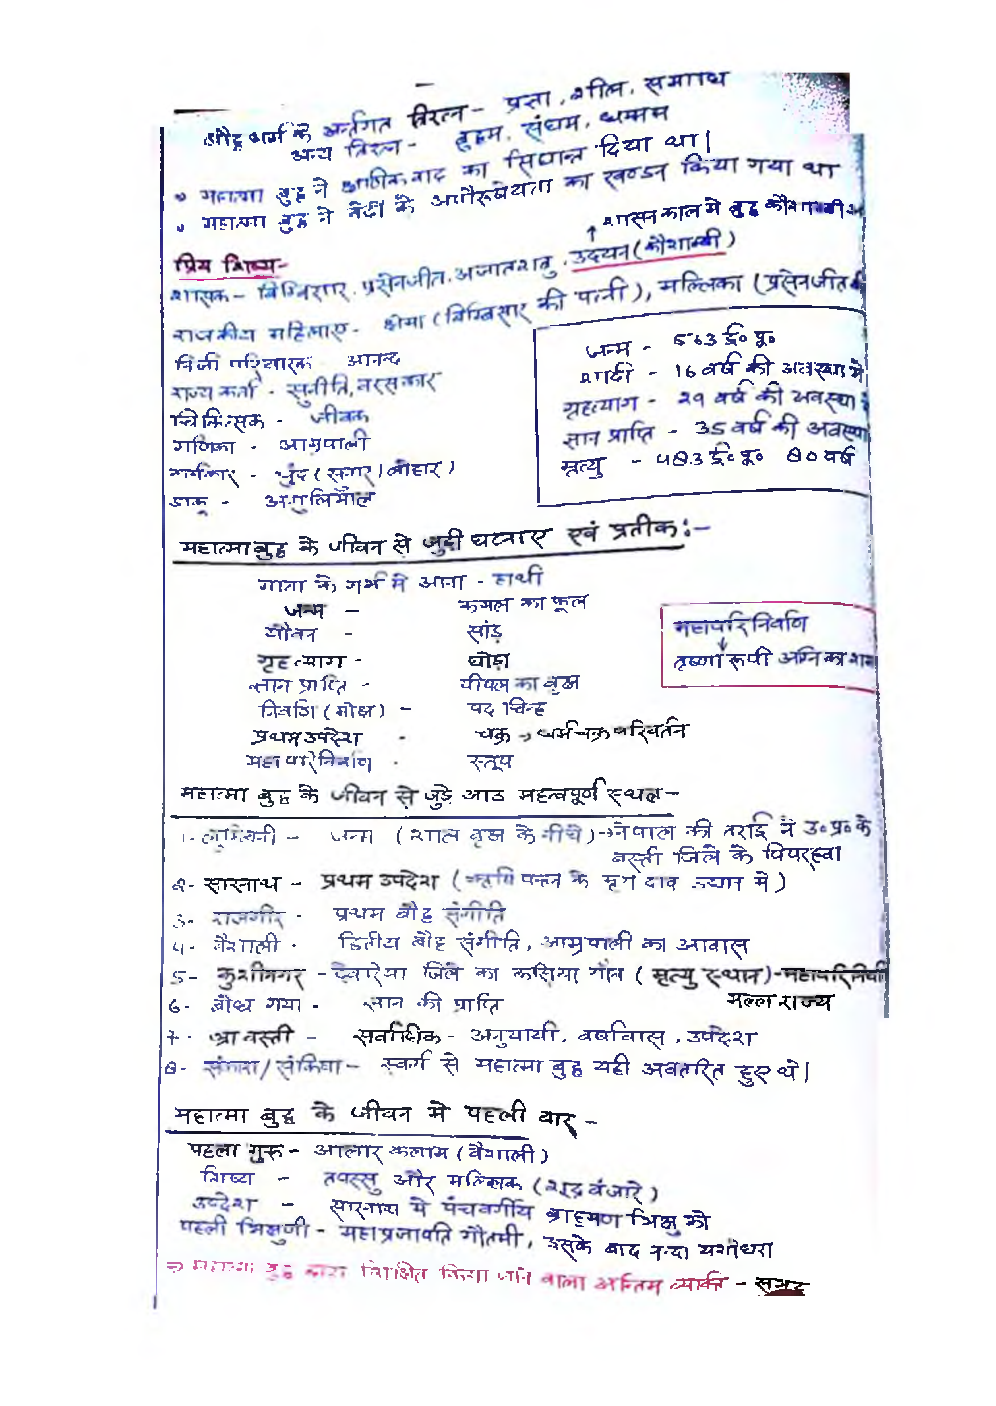 बौद्ध धर्म के अर्न्तगत त्रिरत्न - प्रज्ञा, शील, समाधि
अन्य त्रिरत्न - बुद्धम, संघम, धम्मम
महात्मा बुद्ध ने क्षणिकवाद का सिधान्त दिया था|
महात्मा बुद्ध ने वेदों के अपौरूषेयता का खण्डन किया गया था
↑ शासन काल में बुद्ध कौशाम्बी
प्रिय शिष्य-
शासक - बिम्बिसार, प्रसेनजीत, अजातशत्रु, उदयन (कौशाम्बी)
राजकीय महिलाए - क्षेमा (बिम्बिसार की पत्नी), मल्लिका (प्रसेनजीत की
निजी परिचारक आनन्द
राज्य कर्ता - सुनीति, वरसकार
चिकित्सक - जीवक
गणिका - आम्रपाली
कर्मकार - चुंद (सुनार/लोहार)
डाकू - अंगुलिमाल
जन्म - 563 ई० पू०
शादी - 16 वर्ष की अवस्था में
गृहत्याग - 29 वर्ष की अवस्था में
ज्ञान प्राप्ति - 35 वर्ष की अवस्था
मृत्यु - 483 ई० पू० 80 वर्ष
महात्मा बुद्ध के जीवन से जुडी घटनाए एवं प्रतीक:-
माता के गर्भ में आना - हाथी
जन्म - कमल का फूल
यौवन - सांड़
गृहत्याग - घोड़ा
ज्ञान प्राप्ति - पीपल का वृक्ष
निर्वाण (मोक्ष) - पद चिन्ह
प्रथम उपदेश - चक्र → धर्मचक्र परिवर्तन
महापरिनिर्वाण - स्तूप
महापरिनिर्वाण
↓
तृष्णा रूपी अग्नि का शमन
महात्मा बुद्ध के जीवन से जुड़े आठ महत्वपूर्ण स्थल-
1- लुम्बिनी - जन्म (शाल वृक्ष के नीचे) → नेपाल की तराई में उ०प्र० के
बस्ती जिले के पिपरहवा
2- सारनाथ - प्रथम उपदेश (ऋषि पत्तन के मृग दाव उद्यान में)
3- राजगीर - प्रथम बौद्ध संगीति
4- वैशाली - द्वितीय बौद्ध संगीति, आम्रपाली का आवास
5- कुशीनगर - देवरिया जिले का कसिया गाँव (मृत्यु स्थान) - महापरिनिर्वाण
मल्ल राज्य
6- बोध गया - ज्ञान की प्राप्ति
7- श्रावस्ती - सर्वाधिक - अनुयायी, वर्षावास, उपदेश
8- संकिसा - स्वर्ग से महात्मा बुद्ध यही अवतरित हुए थे|
महात्मा बुद्ध के जीवन में पहली बार -
पहला गुरू - आलार कलाम (वैशाली)
शिष्य - तपस्सु और मल्लिक (शूद्र बंजारे)
उपदेश - सारनाथ में पंचवर्गीय ब्राह्मण भिक्षु को
पहली भिक्षुणी - महाप्रजापति गौतमी, उसके बाद नन्दा यशोधरा
महात्मा बुद्ध द्वारा शिक्षित किया जाने वाला अन्तिम व्यक्ति - सुभद्द